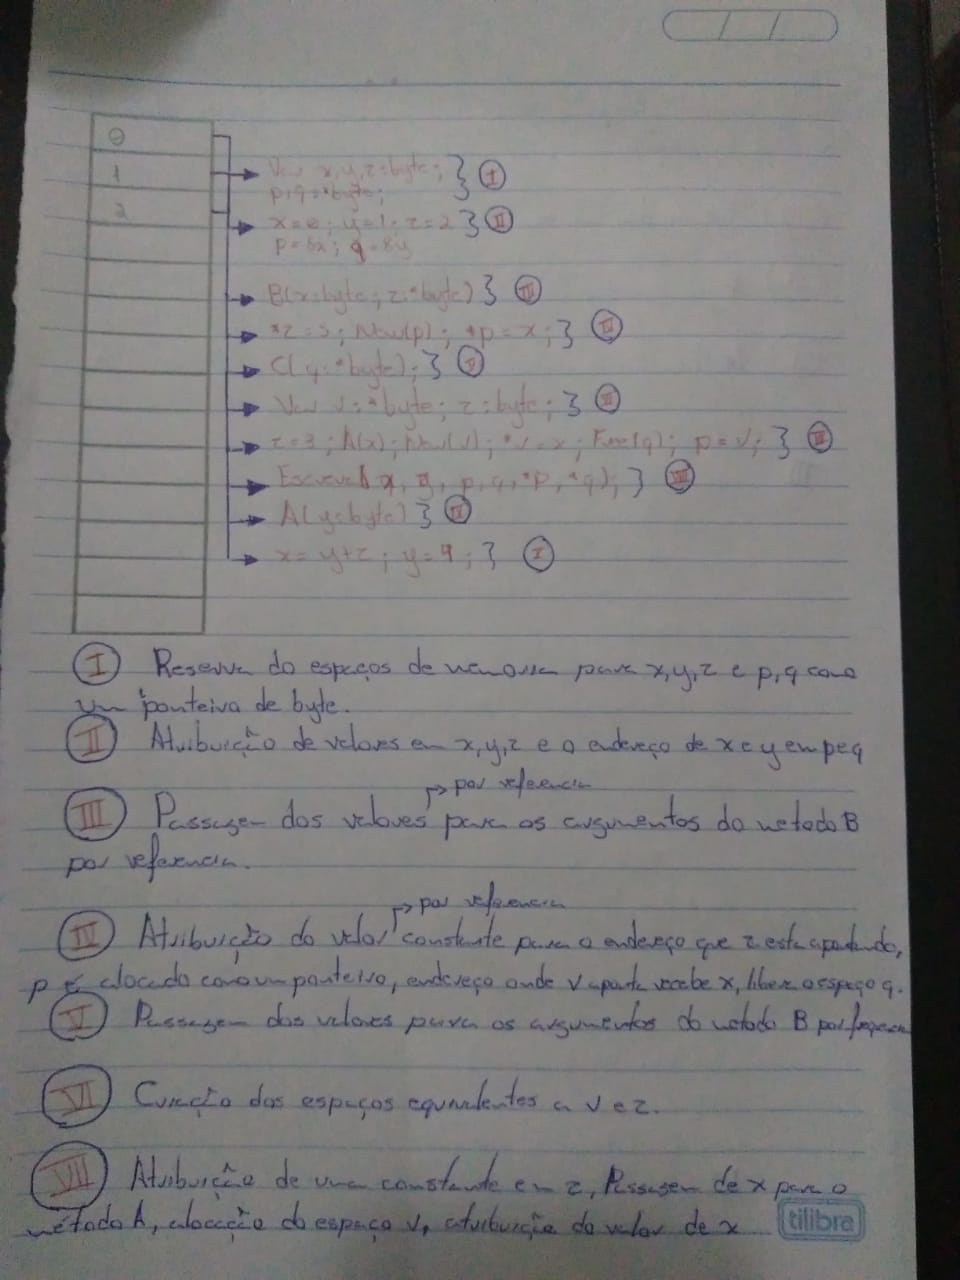 0
1
2
Var x,y,z:byte; } I
p,q:*byte;
x=0; y=1; z=2 } II
p=&x; q=&y
B(x:byte; z:*byte) } III
*z=5; New(p); *p=x; } IV
C(q:*byte); } V
Var v:*byte; z:byte; } VI
z=3; A(x); New(v); *v=x; Free(q); p=v; } VII
Escreve( x, y, p, q, *p, *q); } VIII
A(y:byte) } IX
x=y+z; y=9; } X
I Reserva do espaços de memoria para x,y,z e p,q como
um ponteiro de byte.
II Atribuição de valores em x,y,z e o endereço de x e y em p e q
→ por referencia
III Passagem dos valores para os argumentos do metodo B
por referencia.
→ por referencia
IV Atribuição do valor constante para o endereço que z esta apontando,
p é alocado como um ponteiro, endereço onde v aponta recebe x, libera o espaço q.
V Passagem dos valores para os argumentos do metodo B por
VI Criação dos espaços equivalentes a v e z.
VII Atribuição de uma constante em z, Passagem de x para o
método A, alocação do espaço v, atribuição do valor de x
tilibra